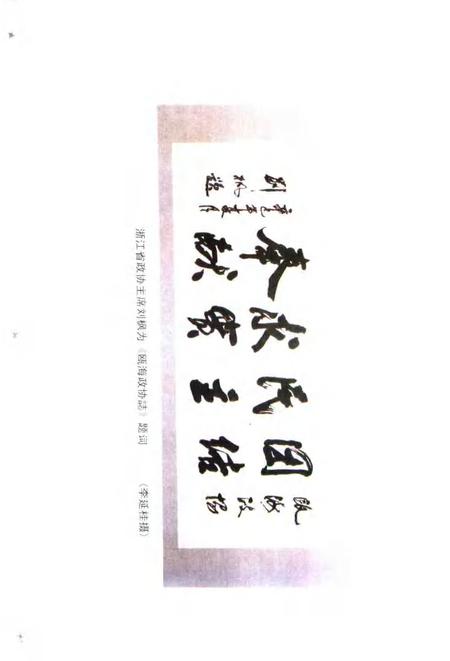 瓯海政协
团结
民主
求实
奉献
刘枫题
浙江省政协主席刘枫为《瓯海政协誌》题词 （李延桂摄）